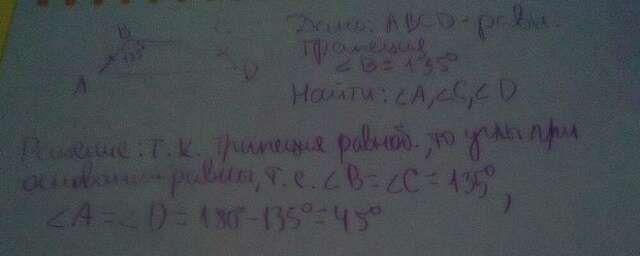 B C
135°
A D
Дано: ABCD - равн.
трапеция
∠B = 135°
Найти: ∠A, ∠C, ∠D
Решение: Т.к. трапеция равноб., то углы при
основании равны, т.е. ∠B = ∠C = 135°,
∠A = ∠D = 180° - 135° = 45°